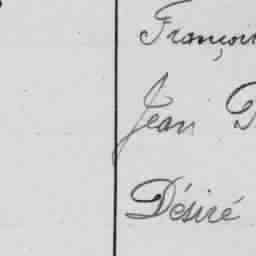 François
Jean
Désiré